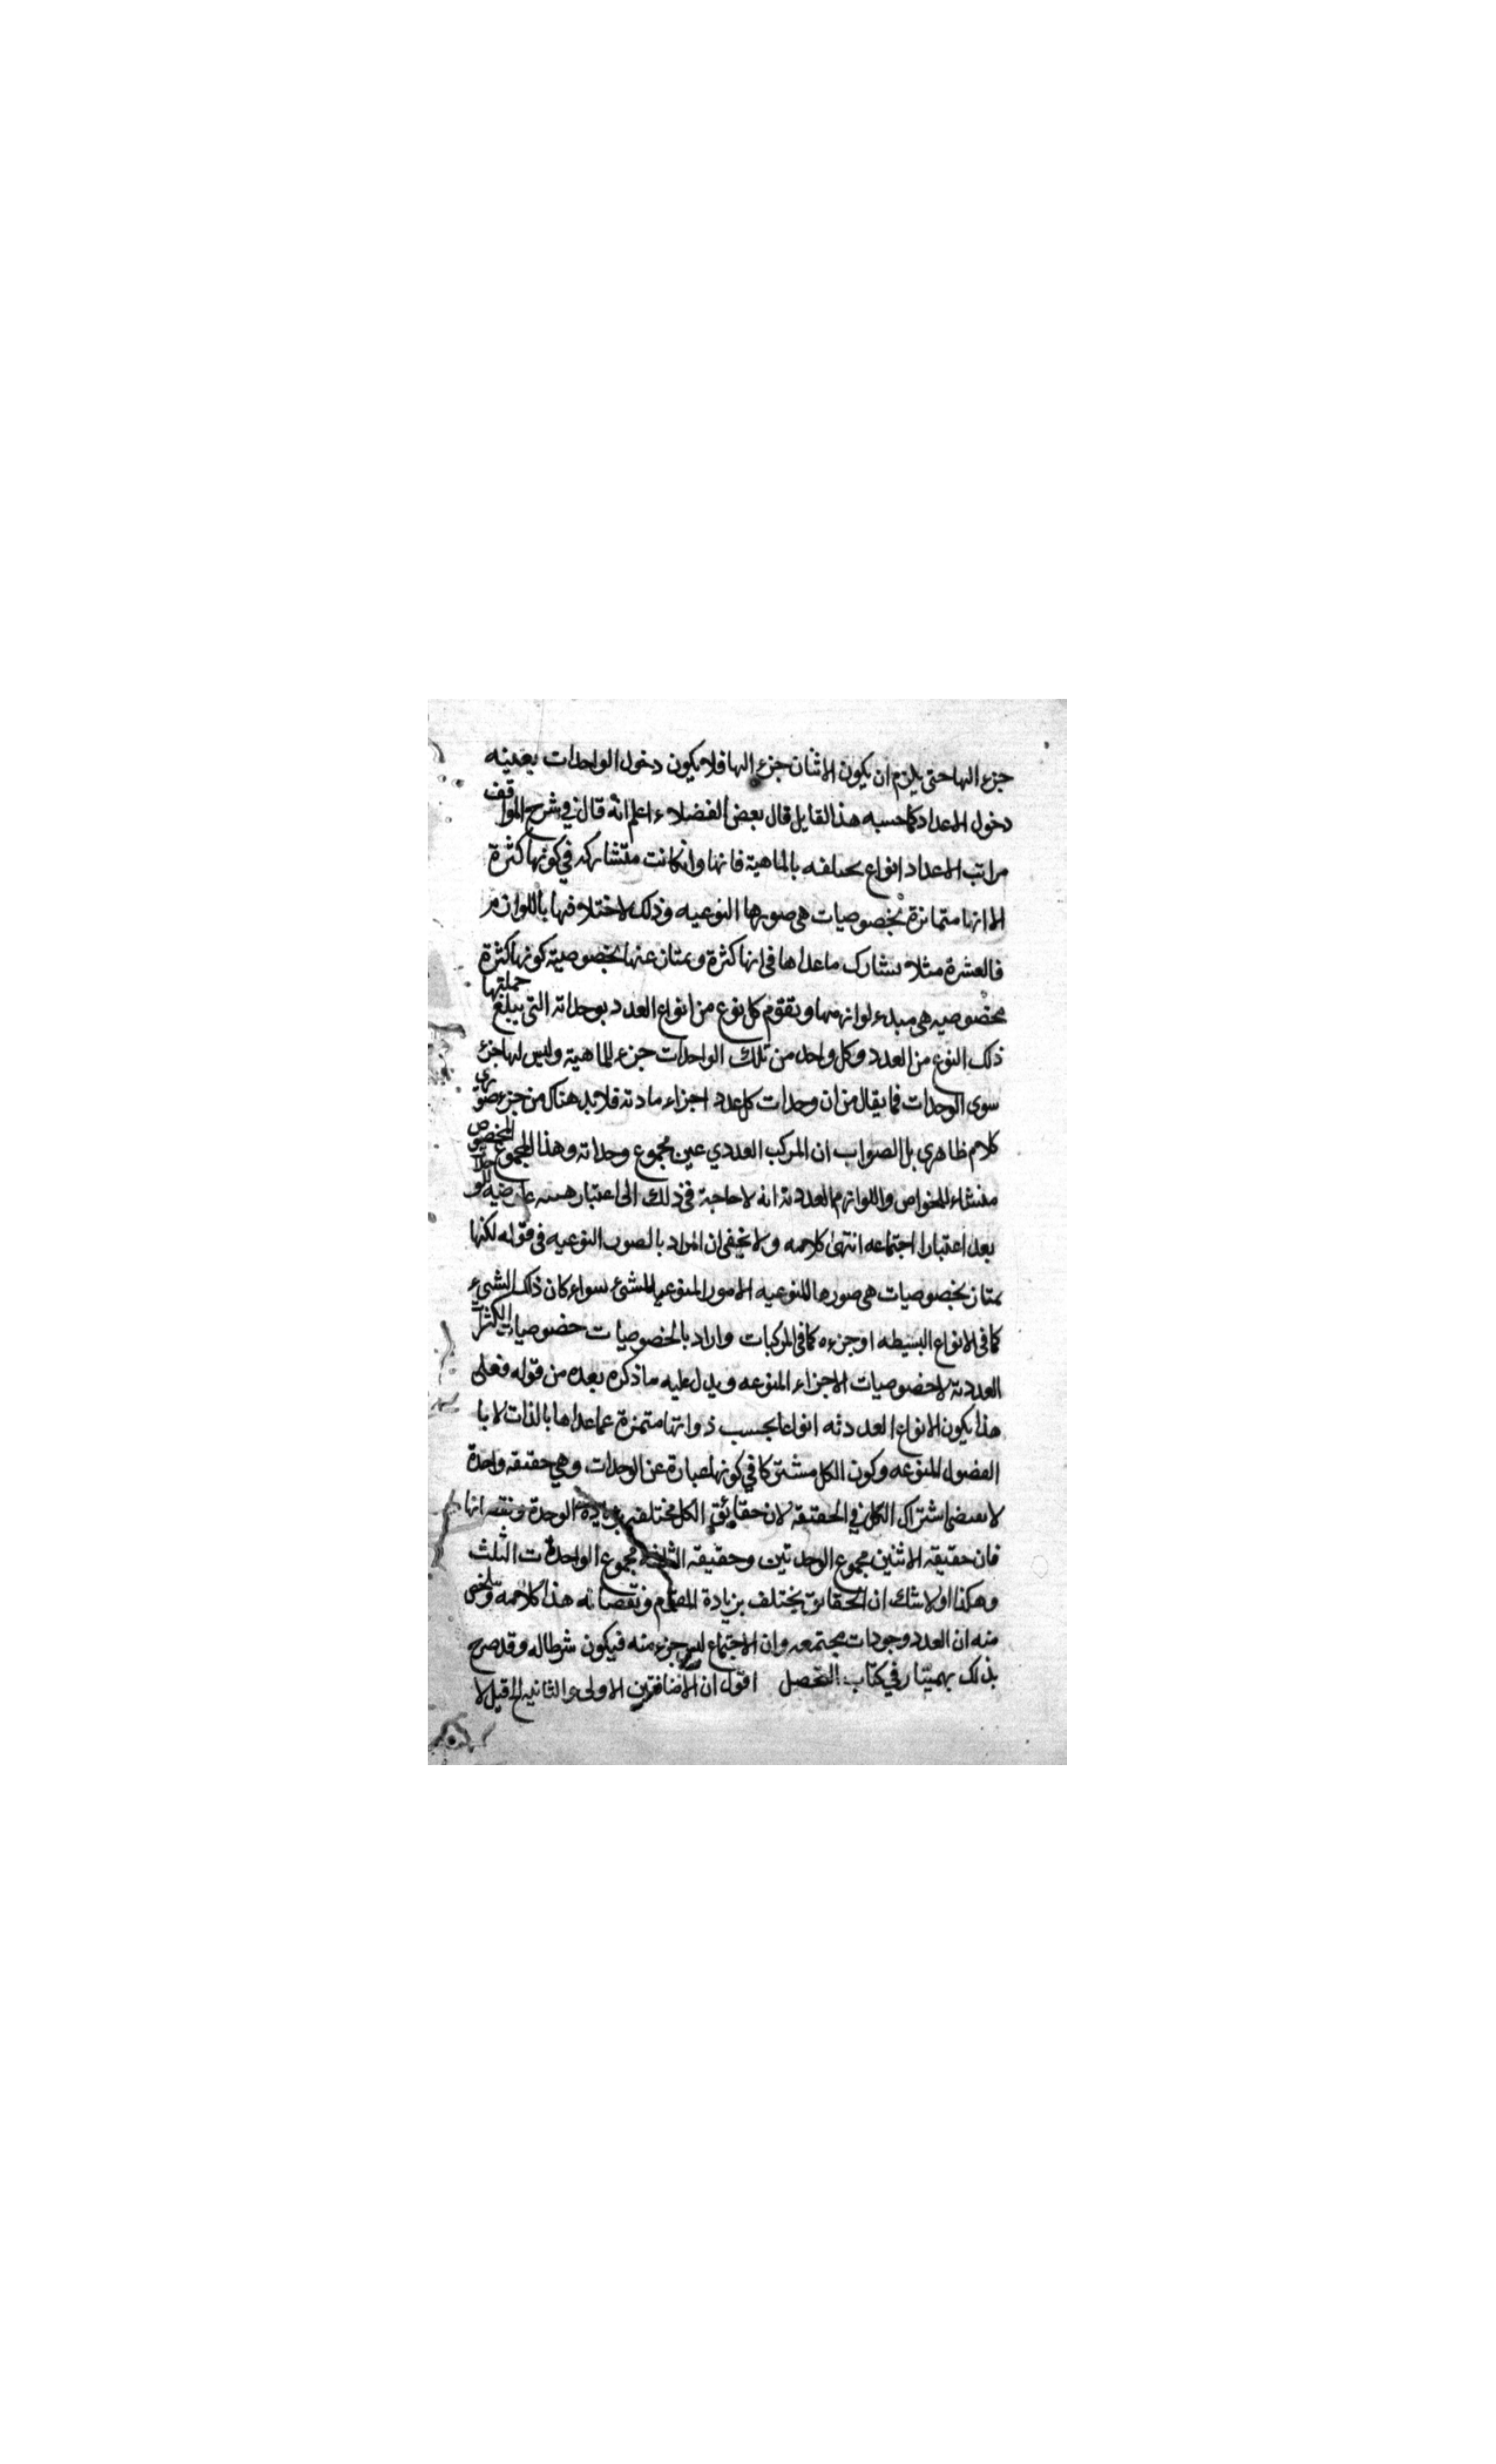 جزء لها حتى يلزم ان يكون الاثنان جزء لها فلا يكون دخول الواحدات بعينه
دخول الاعداد كما حسبه هذا القايل قال بعض الفضلاء اعلم انه قال في شرح المواقف
مراتب الاعداد انواع مختلفه بالماهية فانها وان كانت متشاركه في كونها كثرة
الا انها متمايزة بخصوصيات هي صورها النوعيه وذلك لاختلافها باللوازم
فالعشرة مثلا تشارك ماعداها في انها كثرة وتمتاز عنها بخصوصية كونها كثرة
مخصوصيه هي مبدء لوازمها وتقوم كل نوع من انواع العدد بوحداته التي يبلغ جملتها
ذلك النوع من العدد وكل واحد من تلك الواحدات جزء لماهية وليس لها جزء
سوى الوحدات فما يقال من ان وحدات كل عدد اجزاء مادته فلا بد هناك من جزء صوري
كلام ظاهري بل الصواب ان المركب العددي عين مجموع وحداته وهذا المجموع المخصوص
منشاء للخواص واللوازم العددية انه لا حاجة في ذلك الى اعتبار هيئه عارضيه للوحدات
بعد اعتبار اجتماعه انتهى كلامه ولا يخفى ان المراد بالصور النوعيه في قوله لكنها
تمتاز بخصوصيات هي صورها النوعيه الامور المنوعه للشئ سواء كان ذلك الشيء
كما في الانواع البسيطه او جزءه كما في المركبات واراد بالخصوصيات خصوصيات الكثرات
العددية لا خصوصيات الاجزاء المنوعه ويدل عليه ما ذكره بعده من قوله فعلى
هذا يكون الانواع العددية انواعا بحسب ذواتها متميزة عما عداها بالذات لا با
الفصول المنوعه وكون الكل مشتركا في كونها عبارة عن الوحدات وهي حقيقه واحدة
لا يقتضى اشتراك الكل في الحقيقه لان حقائق الكل مختلفه بزيادة الوحدة ونقصانها
فان حقيقه الاثنين مجموع الوحدتين وحقيقه الثلثه مجموع الواحدات الثلث
وهكذا ولا شك ان الحقائق يختلف بزيادة المقوم ونقصانه هذا كلامه وتلخص
منه ان العدد وجودات مجتمعه وان الاجتماع ليس جزء منه فيكون شرطا له وقد صرح
بذلك بهمنيار في كتاب التحصيل اقول ان الاضافتين الاولى والثانيه الخ قيل لا